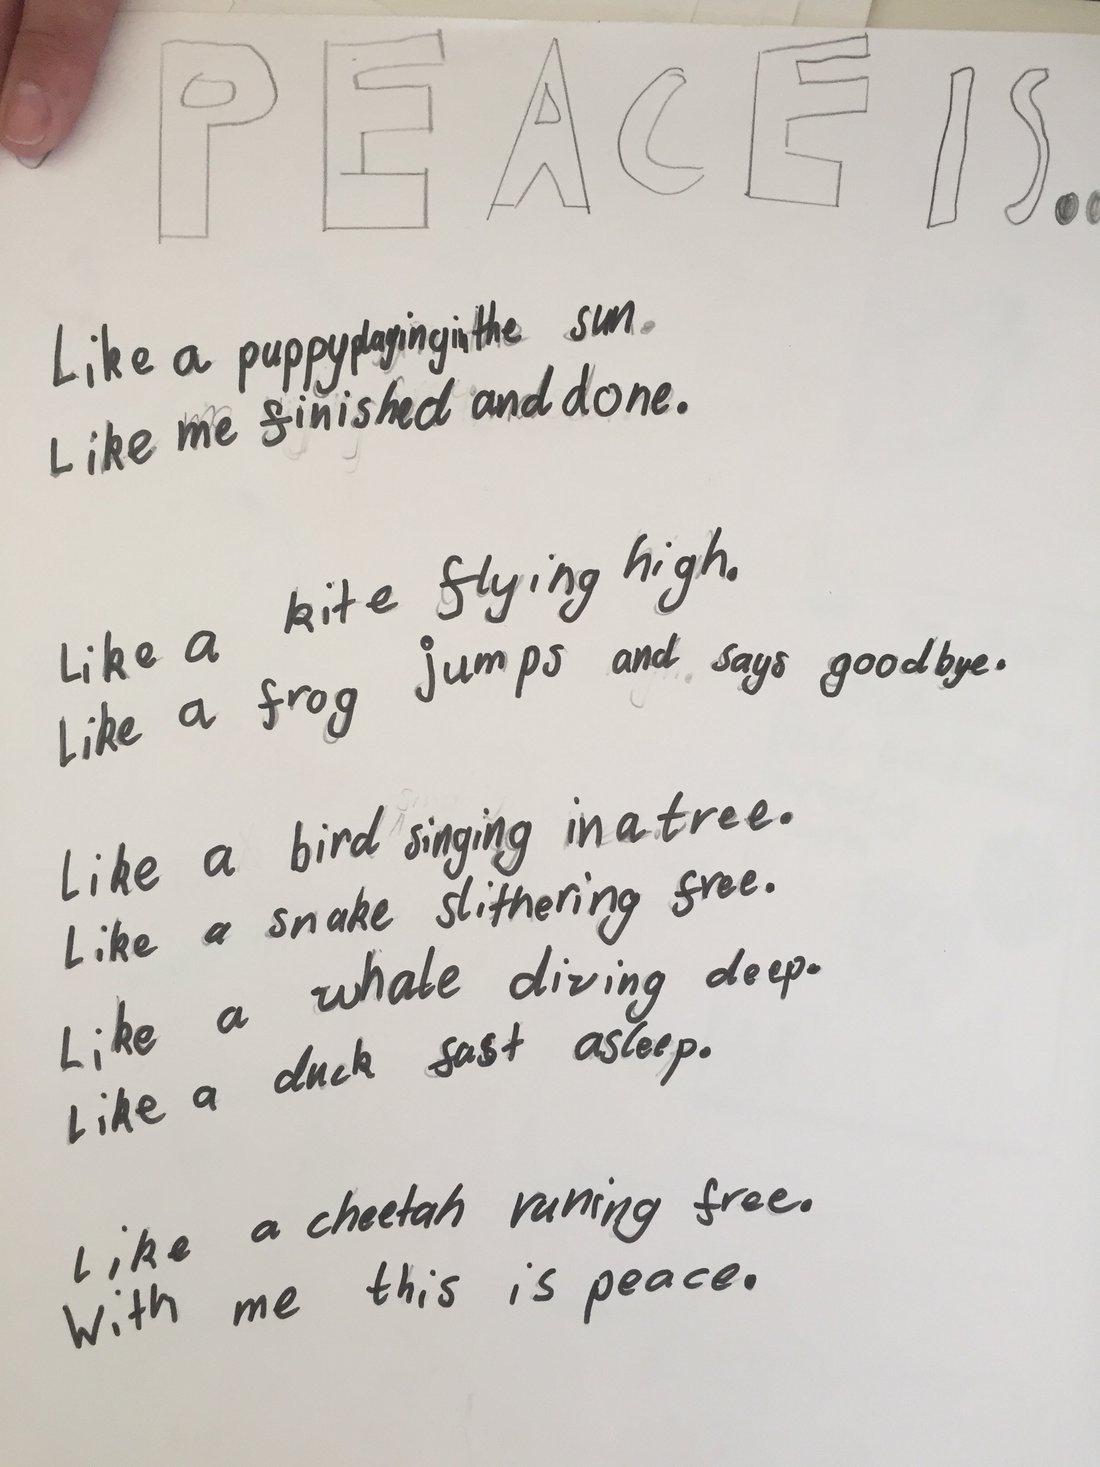 PEACE IS..
Like a puppy playing in the sun.
Like me finished and done.
Like a kite flying high.
Like a frog jumps and says goodbye.
Like a bird singing in a tree.
Like a snake slithering free.
Like a whale diving deep.
Like a duck fast asleep.
Like a cheetah runing free.
With me this is peace.